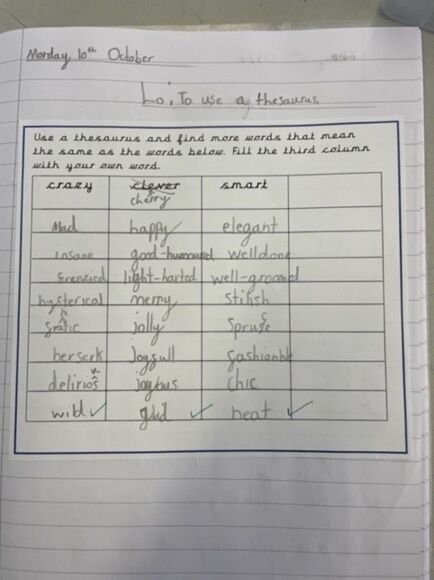 Monday 10th October
Lo: To use a thesaurus.
Use a thesaurus and find more words that mean
the same as the words below. Fill the third column
with your own word.
crazy clever smart
cherry
Mad happy elegant
insane good-humoured welldone
frenzied light-harted well-groomed
hysterical merry stilish
jolly spruce
berserk Joyfull fashionble
delirios joybus chic
wild glad neat